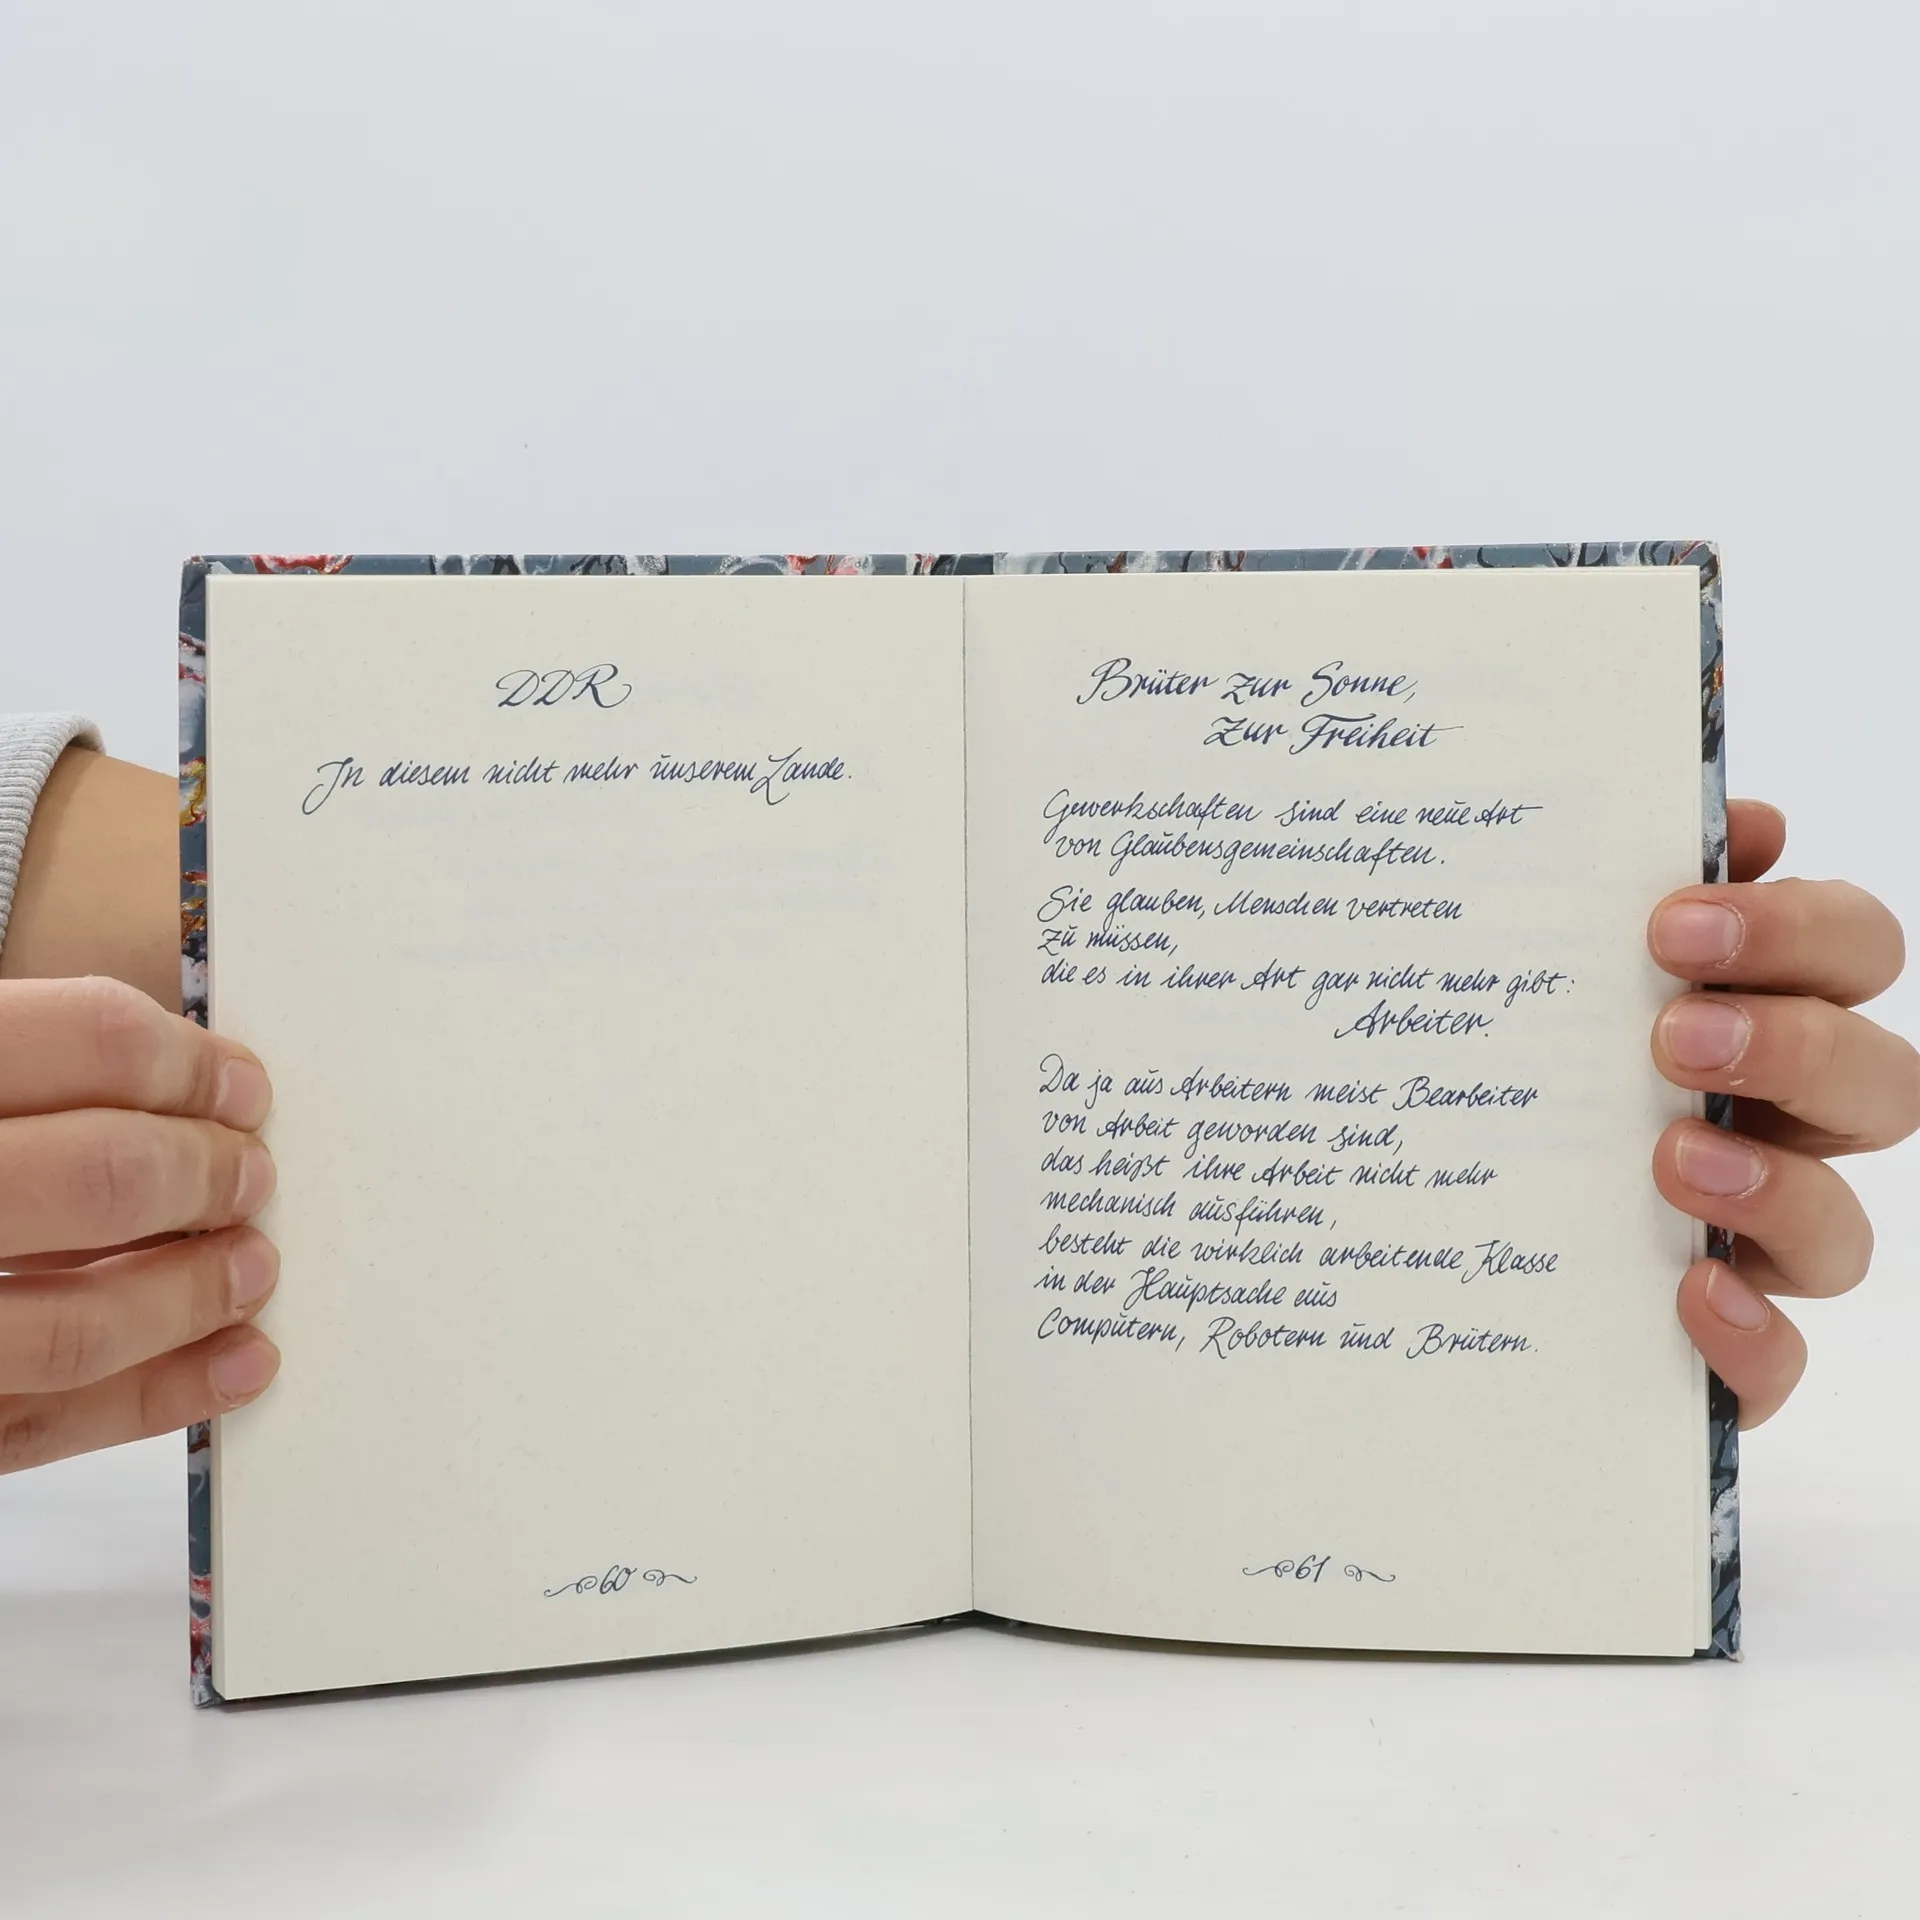 DDR
In diesem nicht mehr unserem Lande.
60
Brüter zur Sonne,
zur Freiheit
Gewerkschaften sind eine neue Art
von Glaubensgemeinschaften.
Sie glauben, Menschen vertreten
zu müssen,
die es in ihrer Art gar nicht mehr gibt:
Arbeiter.
Da ja aus Arbeitern meist Bearbeiter
von Arbeit geworden sind,
das heißt ihre Arbeit nicht mehr
mechanisch ausführen,
besteht die wirklich arbeitende Klasse
in der Hauptsache aus
Computern, Robotern und Brütern.
61